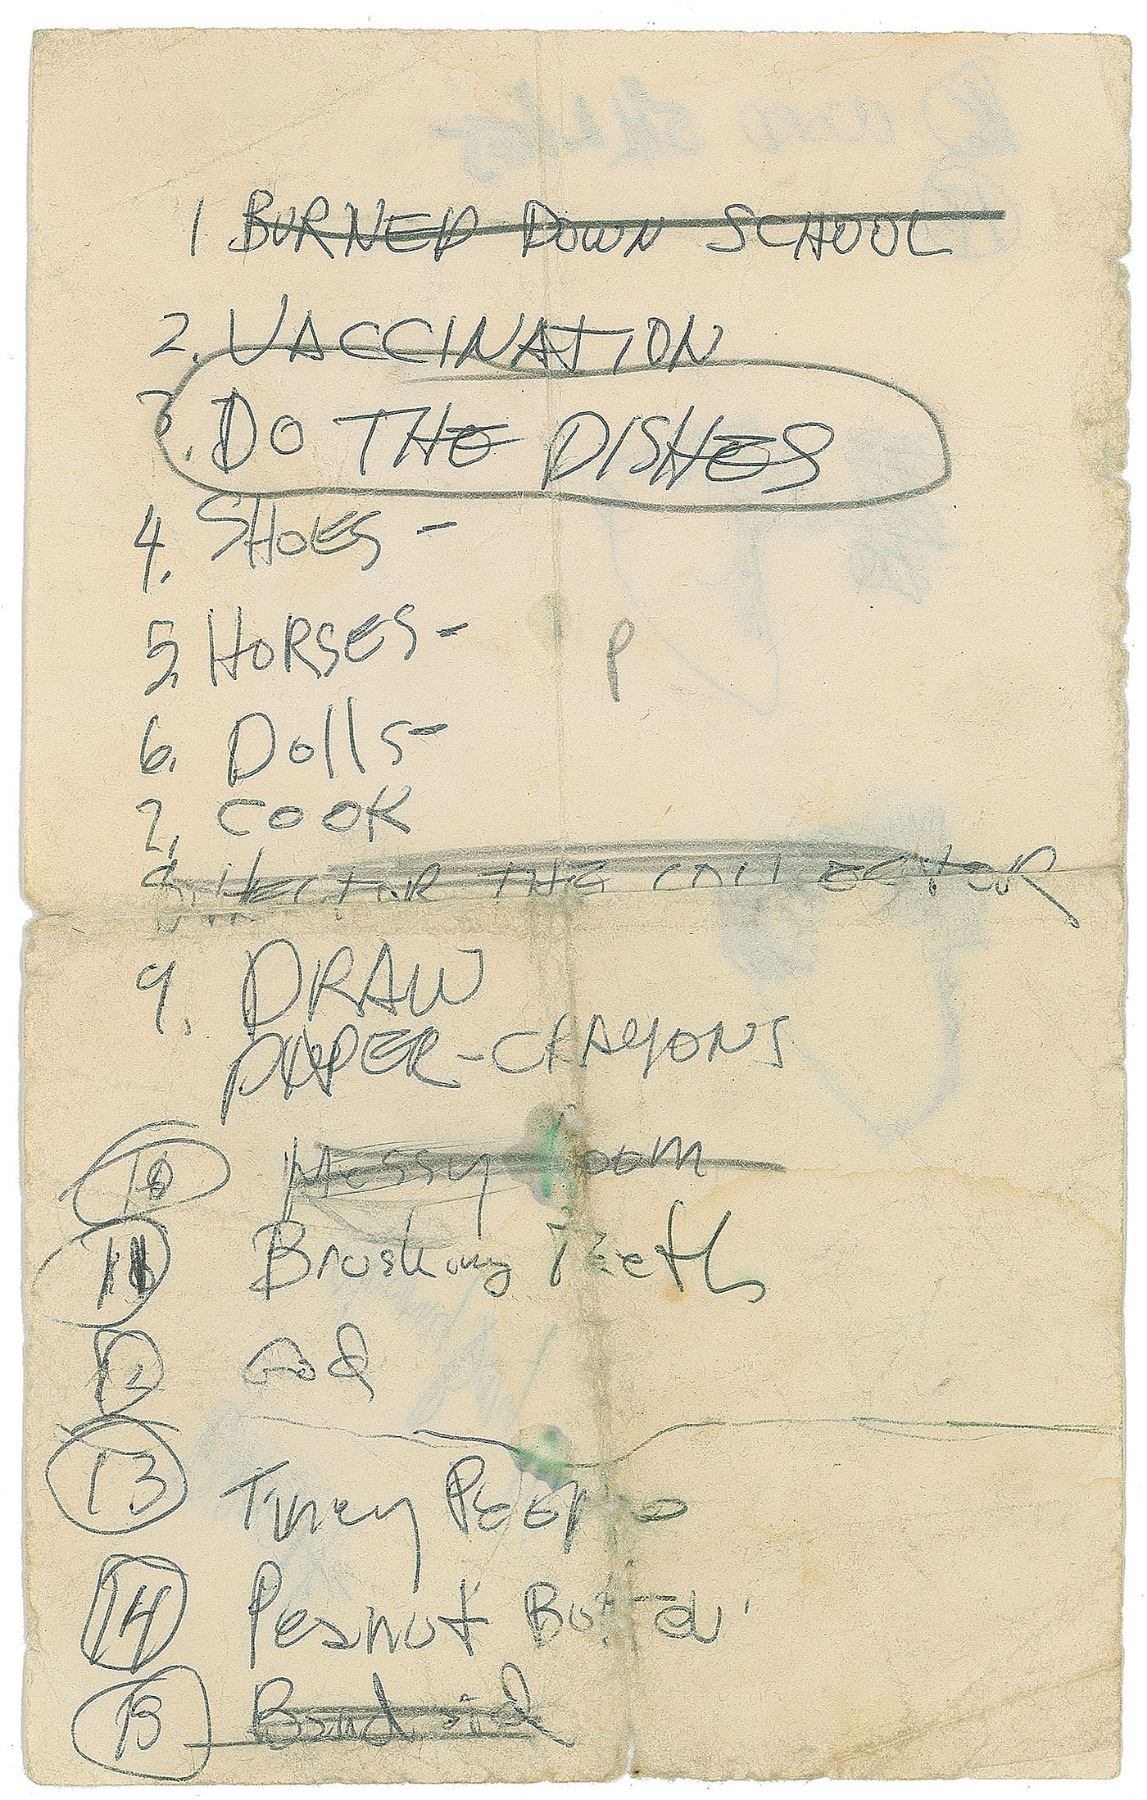 1 BURNED DOWN SCHOOL
2. VACCINATION
3. DO THE DISHES
4. SHOES -
5. HORSES -
P
6. Dolls -
7. COOK
8. HECTOR THE COLLECTOR
9. DRAW
PAPER - CRAYONS
10 Messy Room
11 Brushing Teeth
12 God
13 Tiney
14 Peanut Butter
15 Band aid